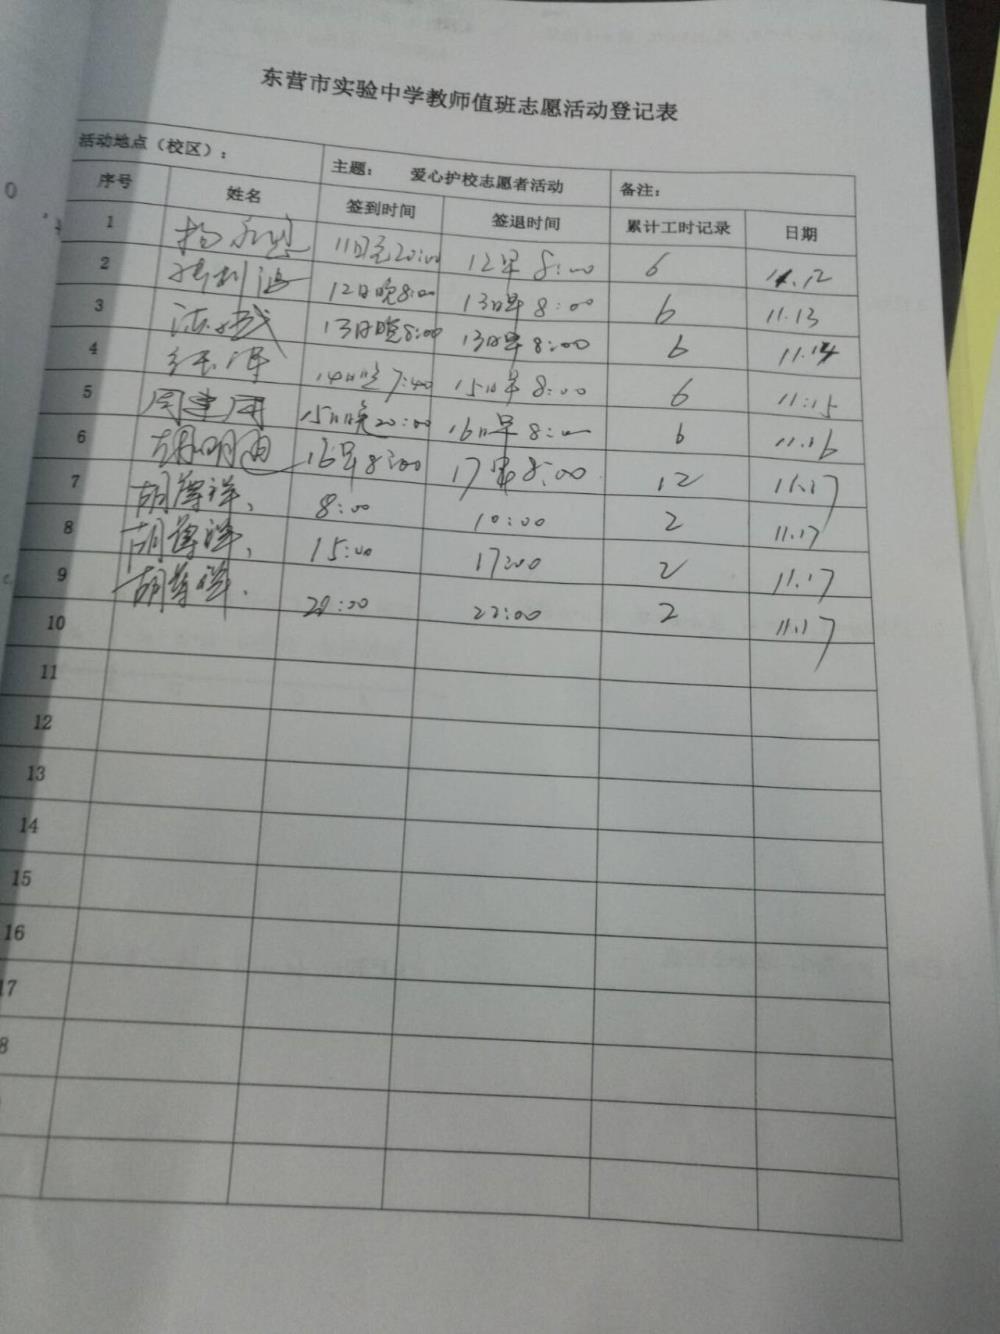 东营市实验中学教师值班志愿活动登记表
活动地点（校区）： 主题： 爱心护校志愿者活动 备注：
序号 姓名 签到时间 签退时间 累计工时记录 日期
1 11日 20:00 12早 8:00 6 11.12
2 12日晚8:00 13日早 8:00 6 11.13
3 13日晚8:00 13日早 8:00 6 11.14
4 14日晚7:40 15日早 8:00 6 11.15
5 周建国 15日晚20:00 16日早 8:00 6 11.16
6 16早8:00 17早8:00 12 11.17
7 胡尊祥、 8:00 10:00 2 11.17
8 胡尊祥、 15:00 17:00 2 11.17
9 胡尊祥. 20:00 22:00 2 11.17
10
11
12
13
14
15
16
17
8